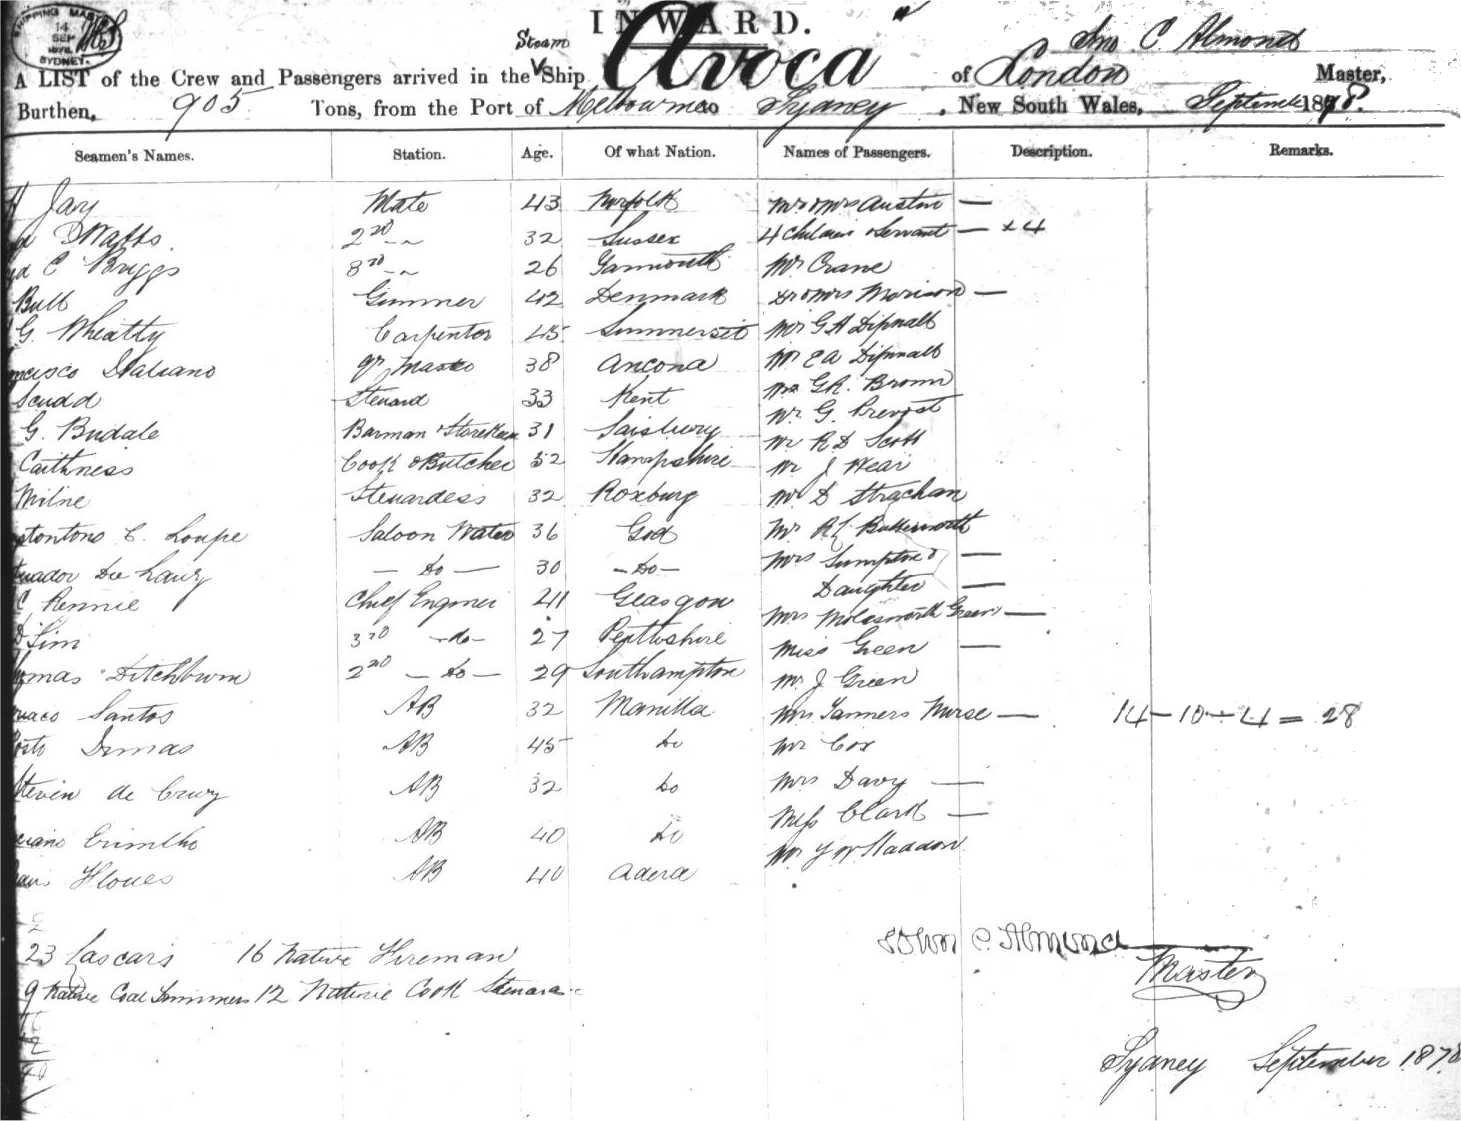 SHIPPING MASTER
14
SEP
1878
SYDNEY.
INWARD.
Jno C Almond
A LIST of the Crew and Passengers arrived in the Steam Ship Avoca of London Master,
Burthen, 905 Tons, from the Port of Melbourne to Sydney, New South Wales, September 1878.
Seamen's Names. Station. Age. Of what Nation. Names of Passengers. Description. Remarks.
Jay Mate 43 Norfolk Mr & Mrs Austin —
Watts 2nd -„- 32 Sussex 4 Children & Servant — + 4
C Briggs 3rd -„- 26 Yarmouth Mr Crane
Bull Gunner 42 Denmark Dr & Mrs Morison —
G. Wheatty Carpenter 45 Summersit Mr G A Dipnall
Italiano Qr Master 38 Ancona Mr E A Dipnall
Scudd Steward 33 Kent Mr G R. Brown
G. Budale Barman & Storekeeper 31 Salsbury Mr G. Prevost
Caithness Cook & Butcher 52 Hampshire Mr R D Scott
Milne Stewardess 32 Roxburg Mr J Wear
C. Loupe Saloon Waiter 36 Goa Mr D Strachan
— Do — 30 - Do - Mr R L Butterworth
Rennie Chief Engineer 41 Glasgow Mrs Sumpton &
Daughter —
Sim 3rd - do - 27 Perthshire Mrs Molesworth Green —
Ditchburn 2nd — Do — 29 Southampton Miss Green —
Santos AB 32 Manilla Mr J Green
Dimas AB 45 Do Mrs Tanners Nurse — 14 - 10 + 4 = 28
Steven de Cruz AB 32 Do Mr Cox
AB 40 Do Mrs Davy —
AB 40 Miss Clark —
Haddon
23 Lascars 16 Native Fireman
9 Native Coal Trimmers 12 Native Cook Steward
John C. Almond
Master
Sydney September 1878